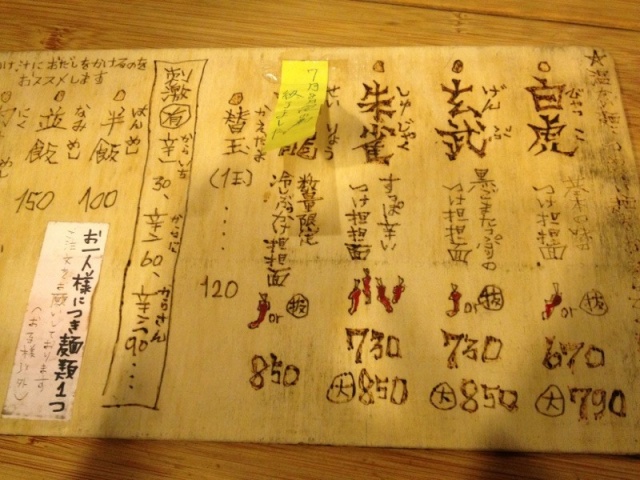 白虎
びゃっこ
つけ担担面
or 抜
670
大 790
玄武
げんぶ
黒ごまたっぷりの
つけ担担面
or 抜
730
大 850
朱雀
しゅじゃく
すっぱ辛い
つけ担担面
730
大 850
せいりょう
数量限定
冷しぶっかけ担担面
or 抜
850
替玉
かえだま
(1玉)
120
刺激有
辛一 30、辛二 60、辛三 90
からいち
からさん
半飯
はんめし
100
並飯
なみめし
150
にく
お一人様につき麺類1つ
ご注文をお願いしております
(お子様以外)
け汁におだしをかけるのを
おススメします